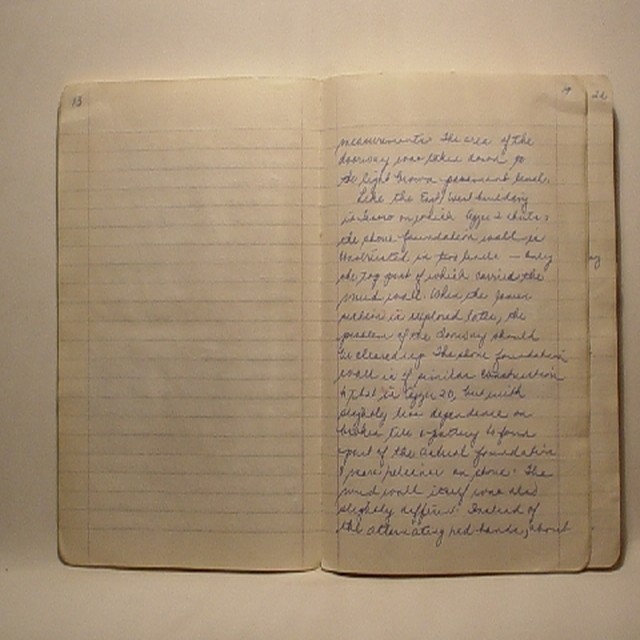 13
19
22
measurements. The area of the
doorway was taken down to
the light brown pavement level.
Like the East West building
in which Aggie
the stone foundation wall is
constructed in two levels — only
the top part of which carried the
mud wall. When the lower
section is explored later, the
problem of the doorway should
be cleared up. The stone foundation
wall is of similar construction
to that in 20, but with
slightly less dependence on
broken tile + pottery to form
a part of the actual foundation
& more reliance on stone. The
mud wall itself was also
slightly different. Instead of
the alternating red bands, about